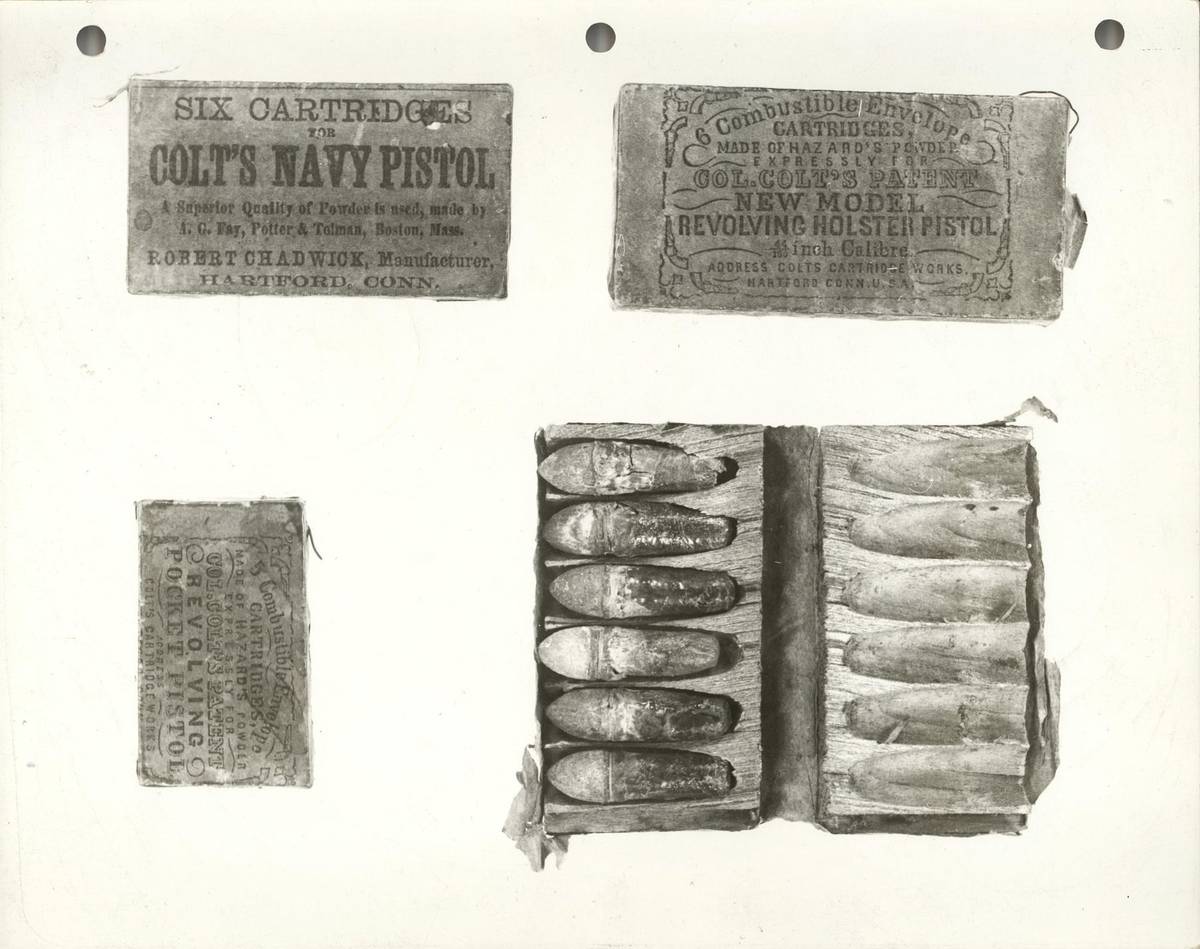 SIX CARTRIDGES
FOR
COLT'S NAVY PISTOL
A Superior Quality of Powder is used, made by
A. G. Fay, Potter & Tolman, Boston, Mass.
ROBERT CHADWICK, Manufacturer,
HARTFORD, CONN.
6 Combustible Envelope
CARTRIDGES,
MADE OF HAZARD'S POWDER
EXPRESSLY FOR
COL. COLT'S PATENT
NEW MODEL
REVOLVING HOLSTER PISTOL
inch Calibre.
ADDRESS COLTS CARTRIDGE WORKS,
HARTFORD CONN. U.S.A.
Combustible Envelope
CARTRIDGES,
MADE OF HAZARD'S POWDER
EXPRESSLY FOR
COL. COLT'S PATENT
REVOLVING
POCKET PISTOL
ADDRESS
COLT'S CARTRIDGE WORKS